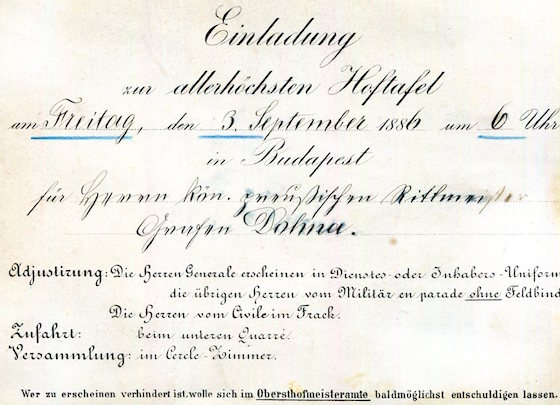 Einladung
zur allerhöchsten Hoftafel
am Freitag, den 3. September 1886 um 6 Uhr
in Budapest
für Herrn kön. preußischen Rittmeister
Grafen Dohna.
Adjustirung: Die Herren Generale erscheinen in Dienstes- oder Inhabers-Uniform
die übrigen Herren vom Militär en parade ohne Feldbind
Die Herren vom Civile im Frack.
Zufahrt: beim unteren Quarré.
Versammlung: im Cercle-Zimmer.
Wer zu erscheinen verhindert ist, wolle sich im Obersthofmeisteramte baldmöglichst entschuldigen lassen.